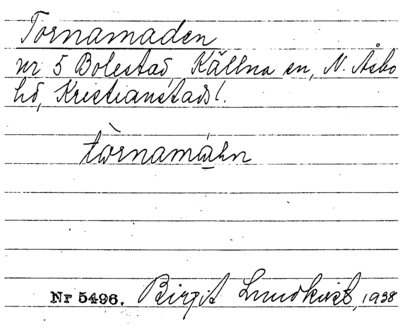 Tornamaden
nr 5 Bolestad, Källna sn, N. Åsbo
hd, Kristianstads l.
tòrnamáhn
Nr 5496. Birgit Lundkvist, 1938